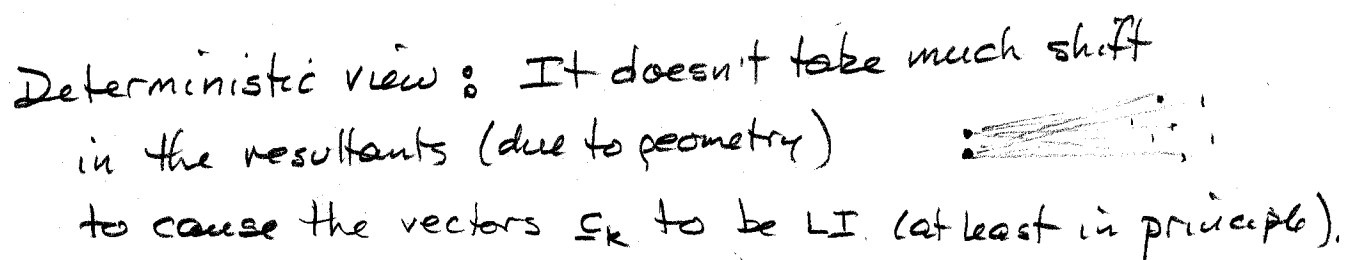 Deterministic view : It doesn't take much shift
in the resultants (due to geometry)
to cause the vectors c̲ₖ to be LI. (at least in principle).